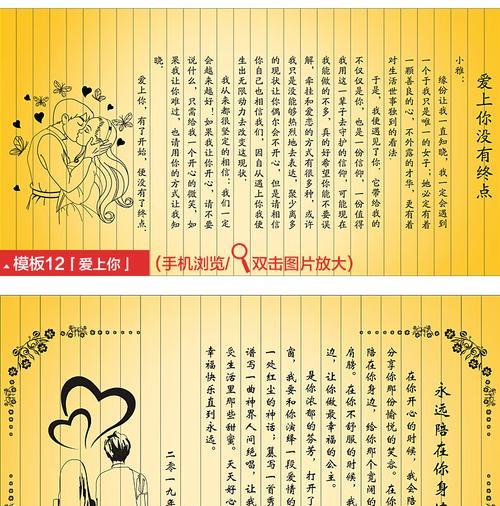 爱上你没有终点
小雅：
缘份让我一直知晓，我一定会遇到
一个于我只是唯一的女子；她必定有着
一颗善良的心，不外露的才华，更有着
对生活世事独到的看法
于是，我便遇见了你，它带给我的
不仅仅是你，也是一份信仰，一份值得
我用这一辈子去守护的信仰，可能现在
我能做的不多，真的好希望你能不要误
解，牵挂和爱恋的方式有很多种，或许
我只是没能够热烈地去表达，聚少离多
的现状让你偶尔会不开心，但是请相信
你自己也相信我们，因自从遇上你我便
生出无限动力去改变这现状。
我从来都很坚定的相信：我们一定
会越来越好！如果我让你开心，请不要
说什么，只需给我一个开心的微笑，如
果我让你难过，也请用你的方式让我知
晓。
爱上你，有了开始，便没有了终点。
模板12「爱上你」
(手机浏览/双击图片放大)
永远陪在你身
在你开心的时候，我会陪
分享你那份愉悦的笑容。在
陪在你身边，给你那个宽阔的
肩膀。在你不舒服的时候，
边，让你做最幸福的公主。
是你浓郁的芬芳，打开了
窗，我要和你演绎一段爱情的
一处红尘的神话；篡写一首秀
谱写一曲神界人间绝唱，让
受生活里那些甜蜜。天天好心
幸福快乐直到永远。
二零一九年